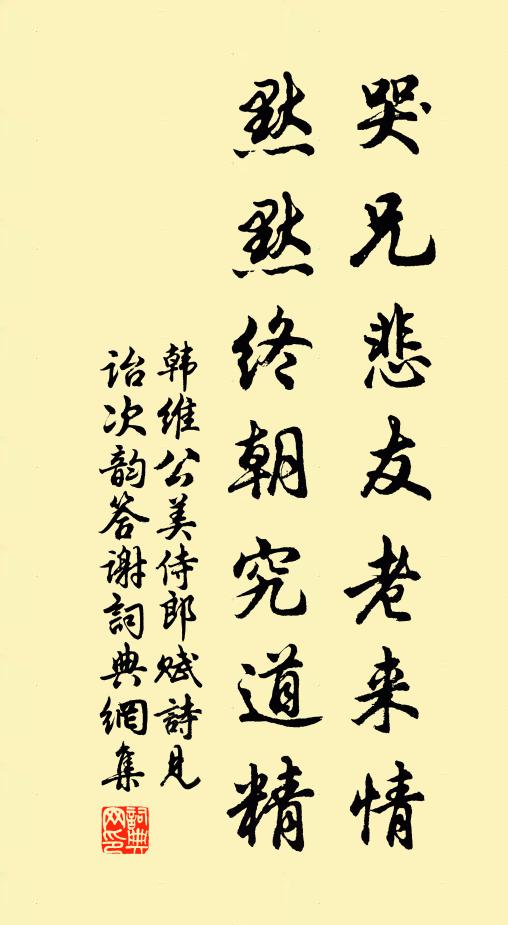 哭兄悲友老来情
默默终朝究道精
韩维公美侍郎赋詩見
诒次韵答谢詞典網集
詞典
网印